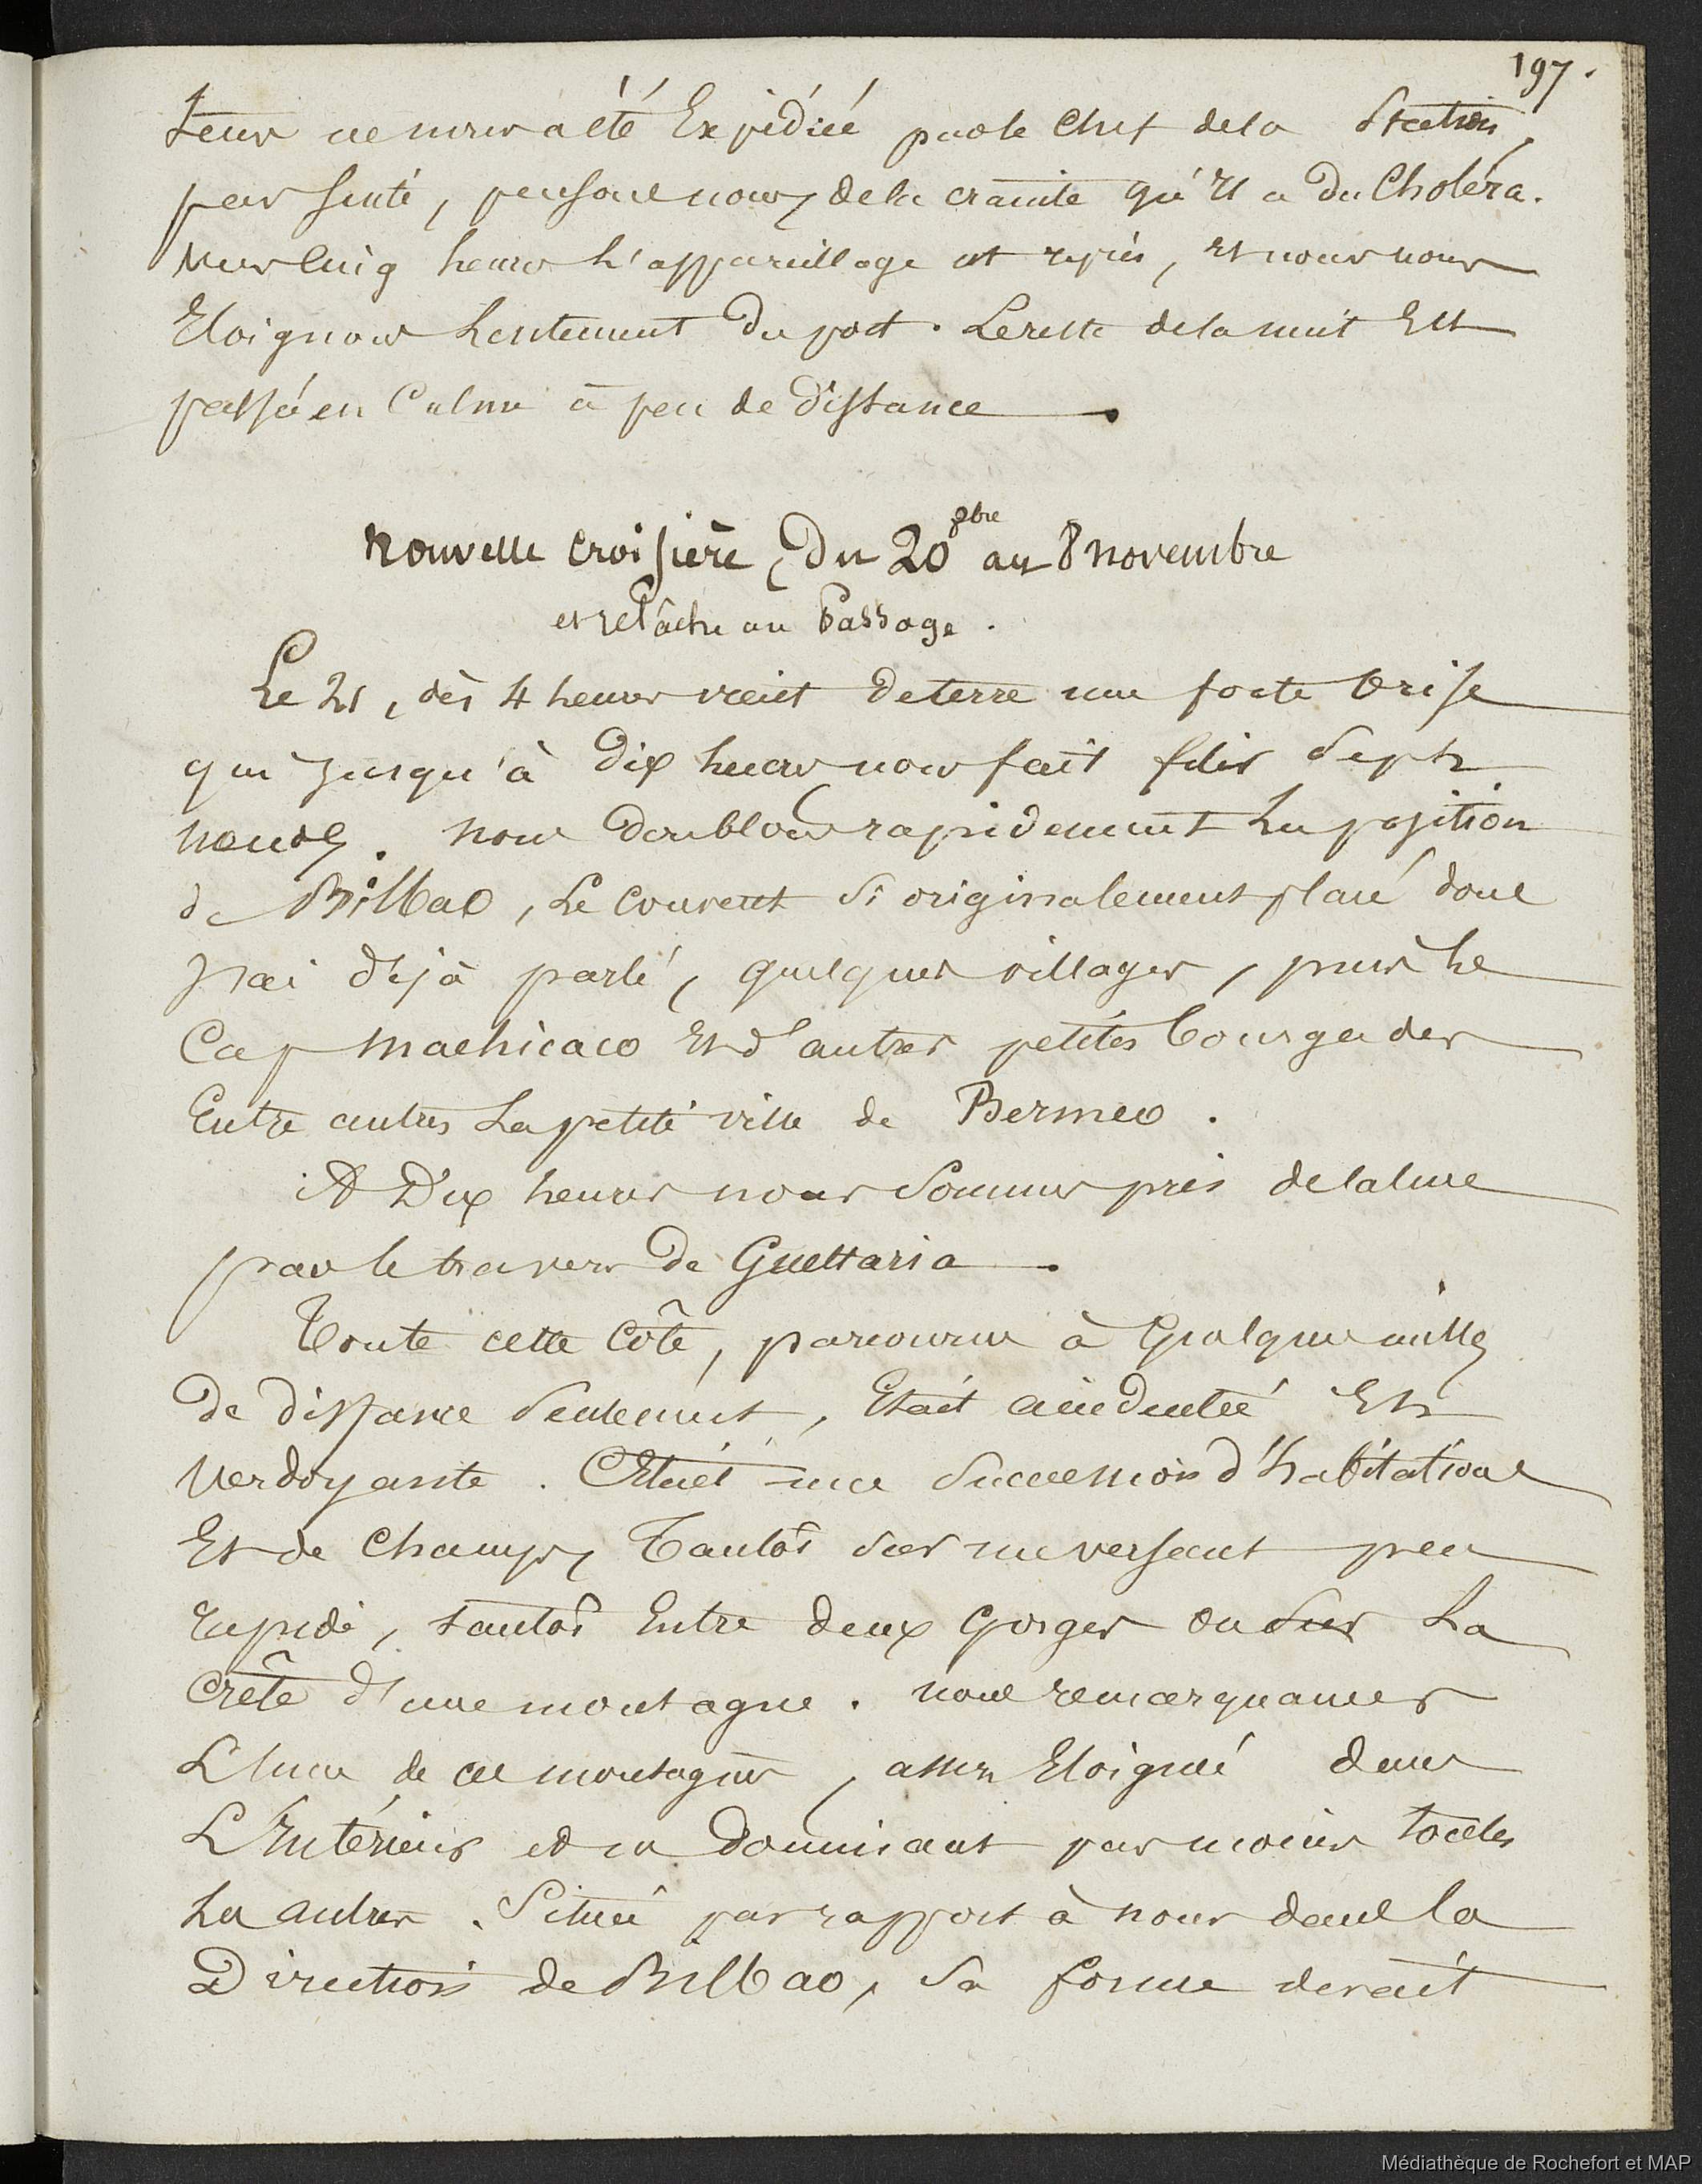 197.
teur ne nous a été Expédiée par le Chef de la Station,
par santé, pensons nous, de la crainte qu'Il a du Choléra.
Vers Cinq heures L'appareillage est repris, Et nous nous
Eloignons Lentement du port. Le reste de la nuit Est
passé en Calme à peu de distance.
Nouvelle Croisière, Du 20 8bre au 8 novembre
et relâche au Passage.
Le 21, dès 4 heures vient de terre une forte brise
qui Jusqu'à Dix heures nous fait filer Sept
nœuds. Nous doublons rapidement La position
de Bilbao, Le Couvent Si originalement placé dont
J'ai déjà parlé, quelques villages, puis Le
Cap Machicaco Et d'autres petites bourgades
Entre autres La petite ville de Bermeo.
A Dix heures nous Sommes près de la lune
par le travers de Guettaria.
Toute cette Côte, parcourue à Quelques milles
De distance Seulement, Etait accidentée Et
Verdoyante. C'Etait une Succession d'habitations
Et de Champs, Tantôt Sur un versant peu
rapide, tantôt Entre deux Gorges ou Sur La
Crête d'une montagne. Nous remarquames
L'une de ces montagnes, assez Eloignée dans
L'Intérieur et en dominant pas moins toutes
Les autres. Située par rapport à nous dans la
Direction de Bilbao, Sa forme devait
Médiathèque de Rochefort et MAP